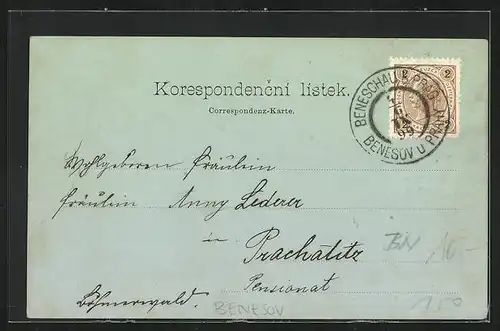 Korespondenční lístek.
Correspondenz-Karte.
BENESCHAU B. PRAG
BENEŠOV U PRAHY
99
2
Wohlgeboren Fräulein
Fräulein Anny Lederer
in
Prachatitz
Pensionat
Böhmerwald.
BENESOV
BN
16-